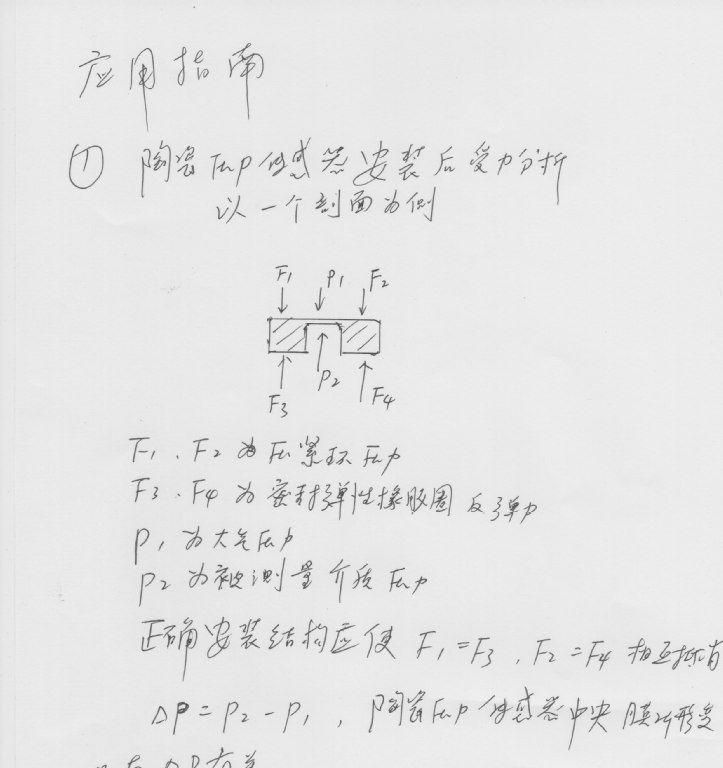 应用指南
① 陶瓷压力传感器安装后受力分析
以一个剖面为例
F1 P1 F2
P2
F3 F4
F1、F2 为压紧环压力
F3、F4 为密封弹性橡胶圈反弹力
P1 为大气压力
P2 为被测量介质压力
正确安装结构应使 F1=F3，F2=F4 相互抵消
ΔP=P2-P1，陶瓷压力传感器中央膜片形变
只与ΔP有关